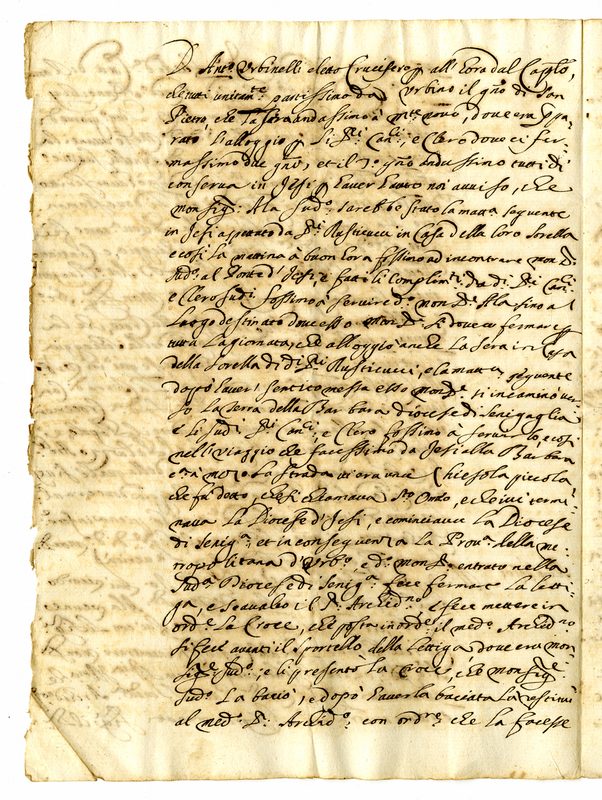 D. Ant.o Urbinelli eletto Crucifero p all'hora dal Capplo,
e tutti unitam.te partissimo da Urbino il gno di San
Pietro che la sera andassimo à m.te novo, dove era ppa
rato l'alloggio p li SS.ri Can.ci, e Clero dove ci fer
massimo due gni, et il 3.o gno andassimo tutti di
conserva in Jesi p haver havuto noi avviso, che
monsig.r A la sud.o sarebbe stato la matta seguente
in Jesi aspettato da SS.ri Rusticucci in Casa della loro sorella
e così la mattina à buon hora fossimo ad incontrare mon S.r
sud.o al Ponte d'Jesi, e fatti li Complim.ti da d.i SS.ri Can.ci
e Clero sud.i fossimo à servire d.o mon S.r A la fino al
luogo destinato dove esso mon S.r si doveva fermare p
tutta la giornata, et alloggiò anche la sera in Casa
della sorella di d.i SS.ri Rusticucci, e la matta seguente
doppò haver sentito messa esso mon S.r si incaminò ver
so la Serra della Barbara diocese di Senigaglia
e li sud.i SS.ri Can.ci, e Clero fossimo à servirlo, e così
nell viaggio che facessimo da Jesi alla Barbara
e à mezo la strada vi era una Chiesola piccola
che fu detto, che si chiamava S.to Onofrio, e che ivi termi
nava la Diocese d'Jesi, e cominciava la Diocese
di Senig.a, et in conseguenza la Prov.a della me
tropolitana d'Urb.o, e d.o mon S.r entrato nella
sud.a Diocese di Senig.a fece fermare la letti
ga, e scavalcò il S.r Archid.no, e fece mettere in
ord.e la Croce, che posta in ord.e il med.o Archid.no
si fece avanti il sportello della lettiga dove era mon
sig.re sud.o, e li presentò la Croce, che monsig.re
sud.o la baciò, e dopò haverla baciata la restituì
al med.o S.r Archid.o con ord.e che la facesse